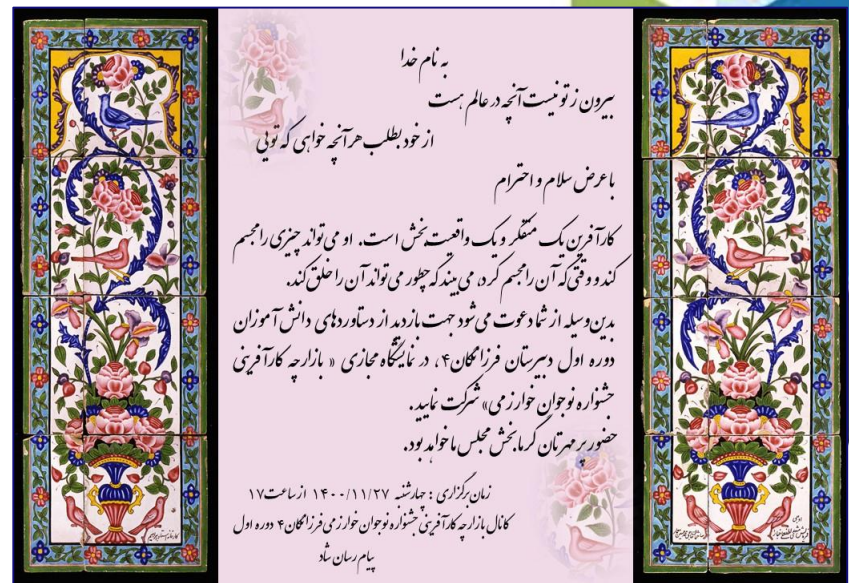 به نام خدا
بیرون ز تو نیست آنچه در عالم هست
از خود بطلب هر آنچه خواهی که تویی
با عرض سلام و احترام
کارآفرین یک متفکر و یک واقعیت بخش است. او می تواند چیزی را مجسم
کند و وقتی که آن را مجسم کرد، می بیند که چطور می تواند آن را خلق کند.
بدین وسیله از شما دعوت می شود جهت بازدید از دستاوردهای دانش آموزان
دوره اول دبیرستان فرزانگان۴، در نمایشگاه مجازی « بازارچه کارآفرینی
جشنواره نوجوان خوارزمی» شرکت نمایید.
حضور پر مهرتان گرما بخش مجلس ما خواهد بود.
زمان برگزاری : چهارشنبه ۱۴۰۰/۱۱/۲۷ از ساعت ۱۷
کانال بازارچه کارآفرینی جشنواره نوجوان خوارزمی فرزانگان۴ دوره اول
پیام رسان شاد